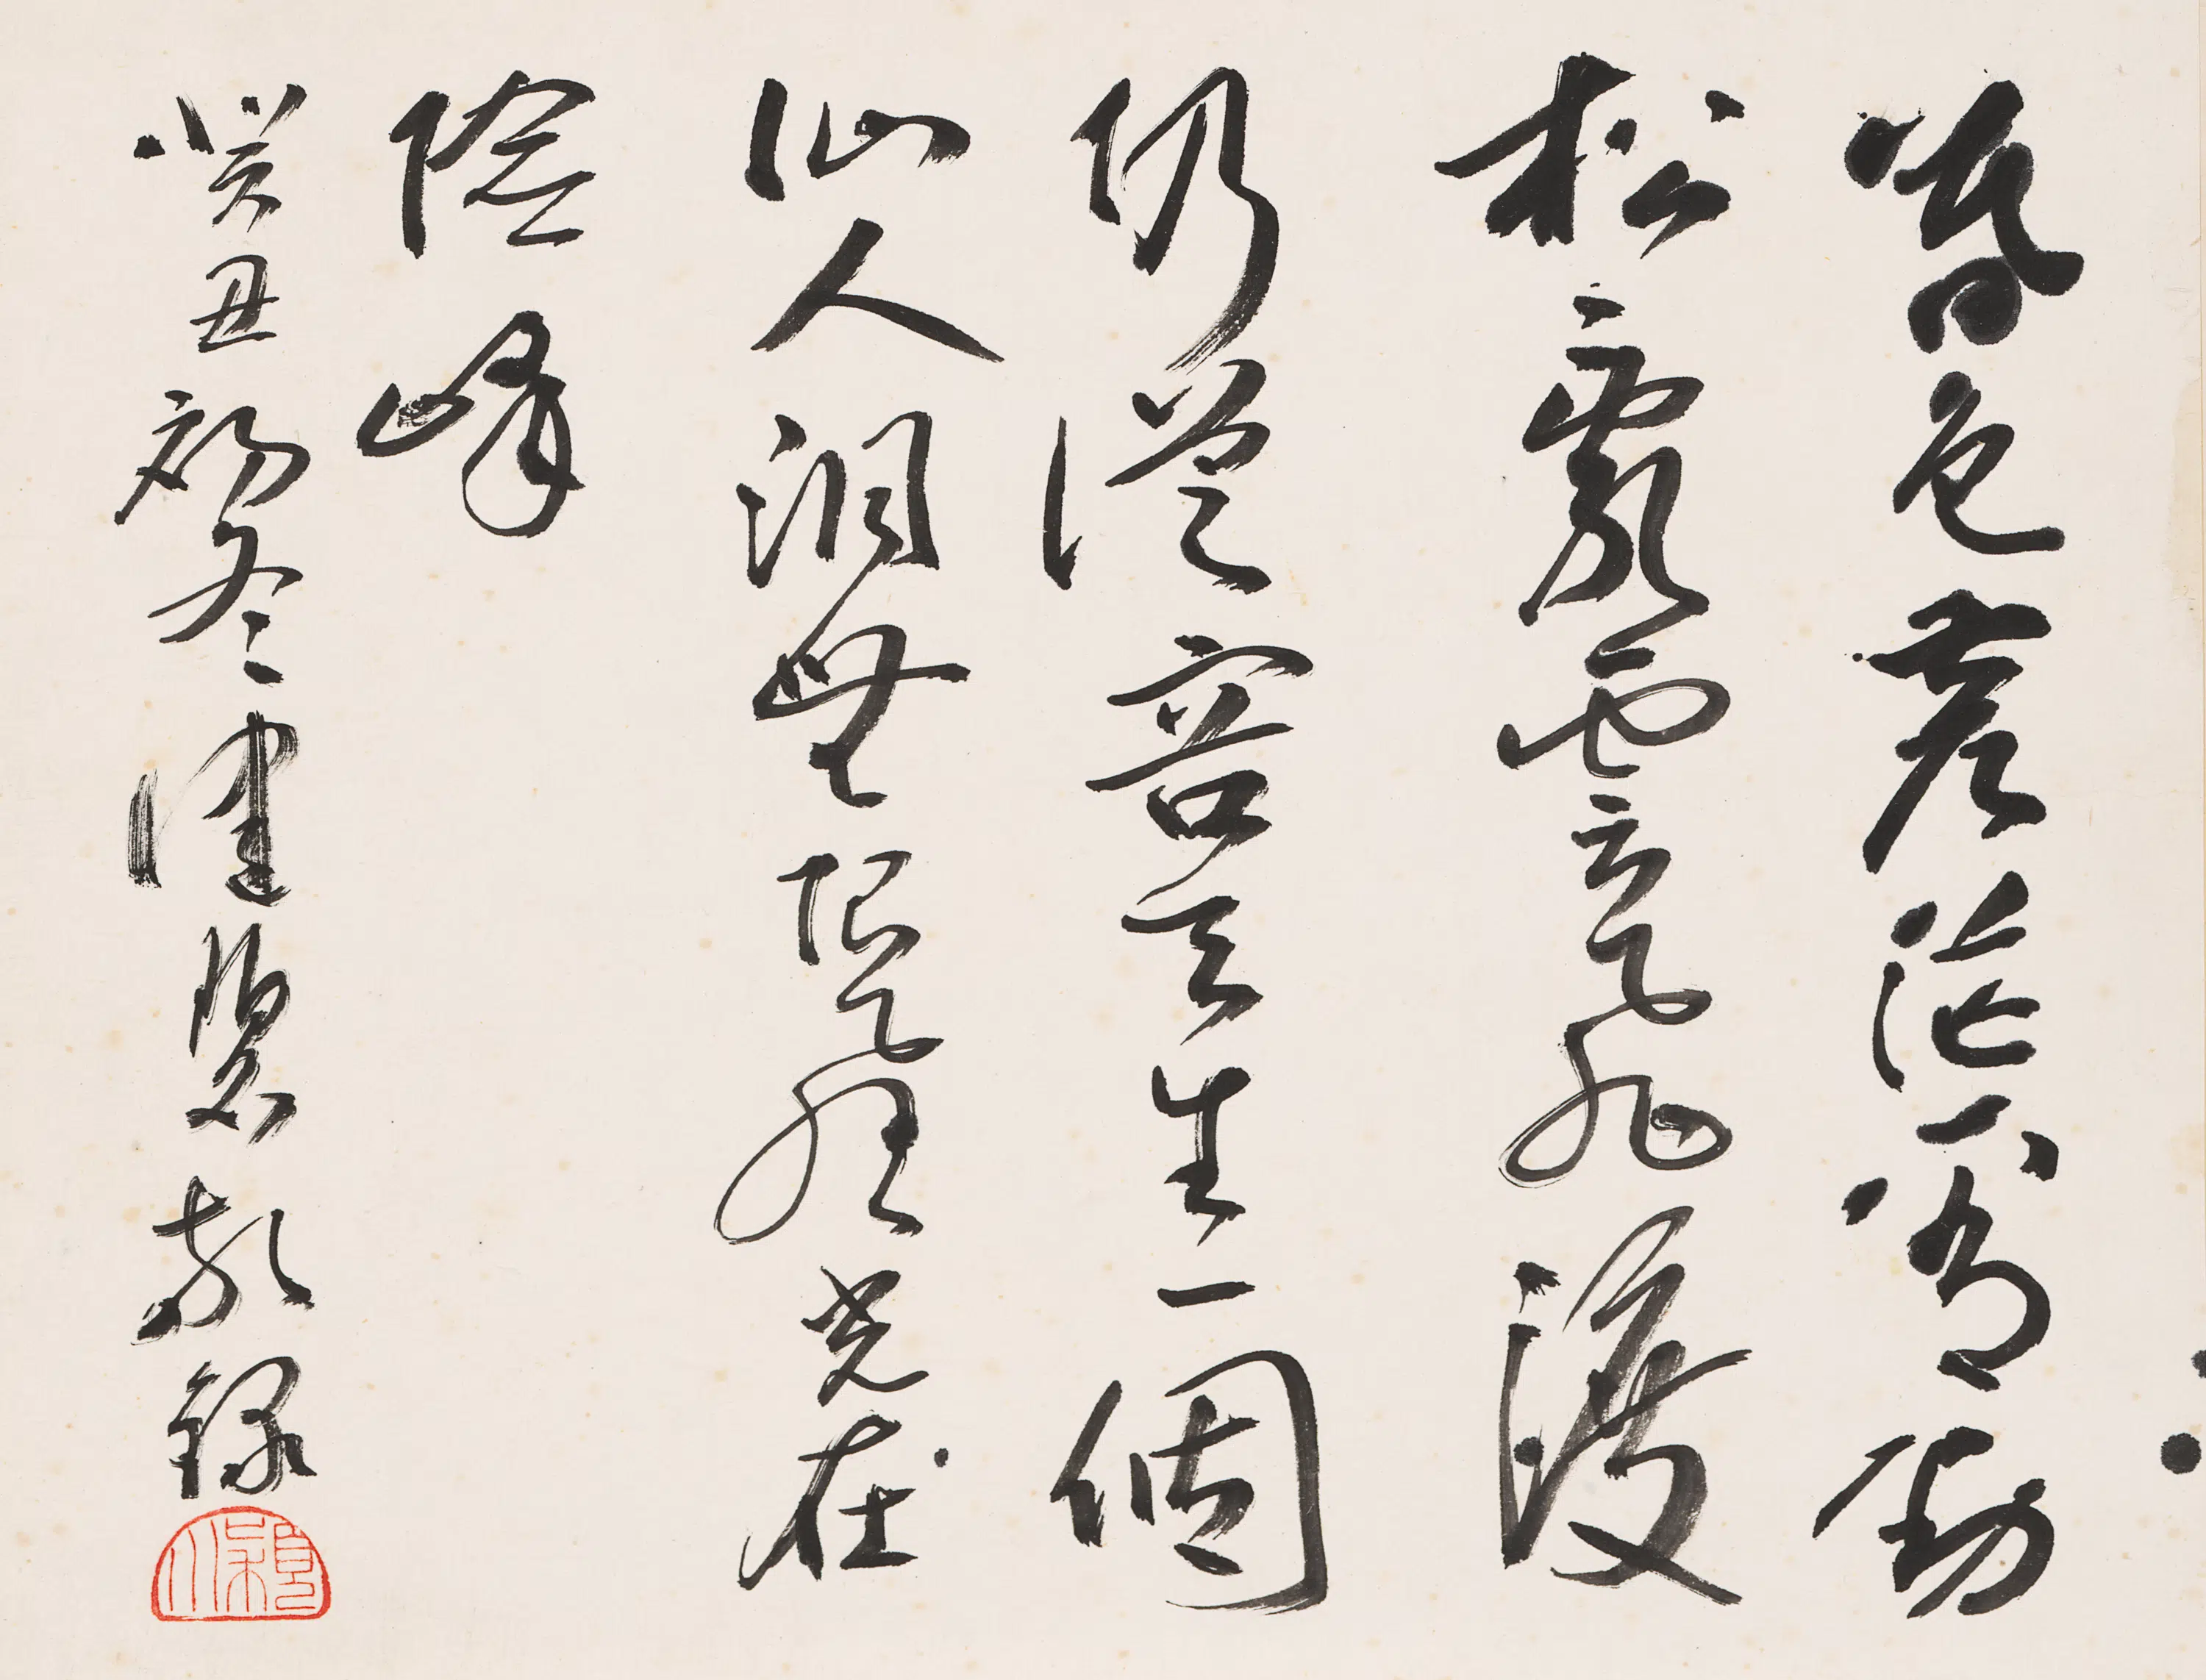 暮色蒼茫看勁
松亂雲飛渡
仍從容天生一個
仙人洞無限風光在
險峰
癸丑初冬健碧敬錄